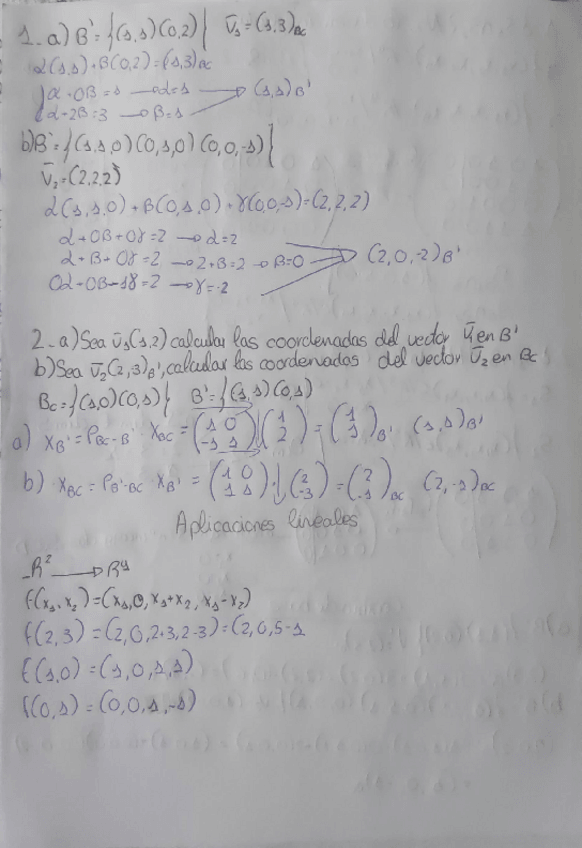 1-a) B'={(1,1)(0,2)} V̄₁=(1,3)BC
α(1,1)+β(0,2)=(1,3)BC
{α+0β=1 → α=1 → (1,1)B'
α+2β=3 → β=1
b) B'={(1,1,0)(0,1,0)(0,0,-1)}
V̄₂=(2,2,2)
α(1,1,0)+β(0,1,0)+γ(0,0,-1)=(2,2,2)
α+0β+0γ=2 → α=2
α+β+0γ=2 → 2+β=2 → β=0 → (2,0,-2)B'
0α-0β-1γ=2 → γ=-2
2-a) Sea ū₁(1,2) calcular las coordenadas del vector ū₁ en B'
b) Sea ū₂(2,3)B', calcular las coordenadas del vector ū₂ en BC
BC={(1,0)(0,1)} B'={(1,1)(0,1)}
a) XB'=PBC-B' · XBC=(1 0 / -1 1)(1 / 2)=(1 / 1)B' (1,1)B'
b) XBC=PB'-BC · XB'=(1 0 / 1 1)·(2 / -3)=(2 / -1)BC (2,-1)BC
Aplicaciones lineales
-R² → R⁴
f(x₁,x₂)=(x₁,0,x₁+x₂,x₁-x₂)
f(2,3)=(2,0,2+3,2-3)=(2,0,5-1
f(1,0)=(1,0,1,1)
f(0,1)=(0,0,1,-1)